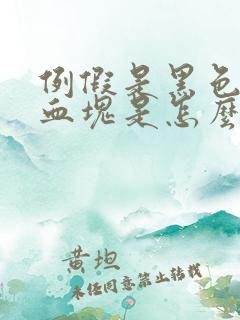 例假是黑色
血块是怎么
黄坦
未经同意禁止转载